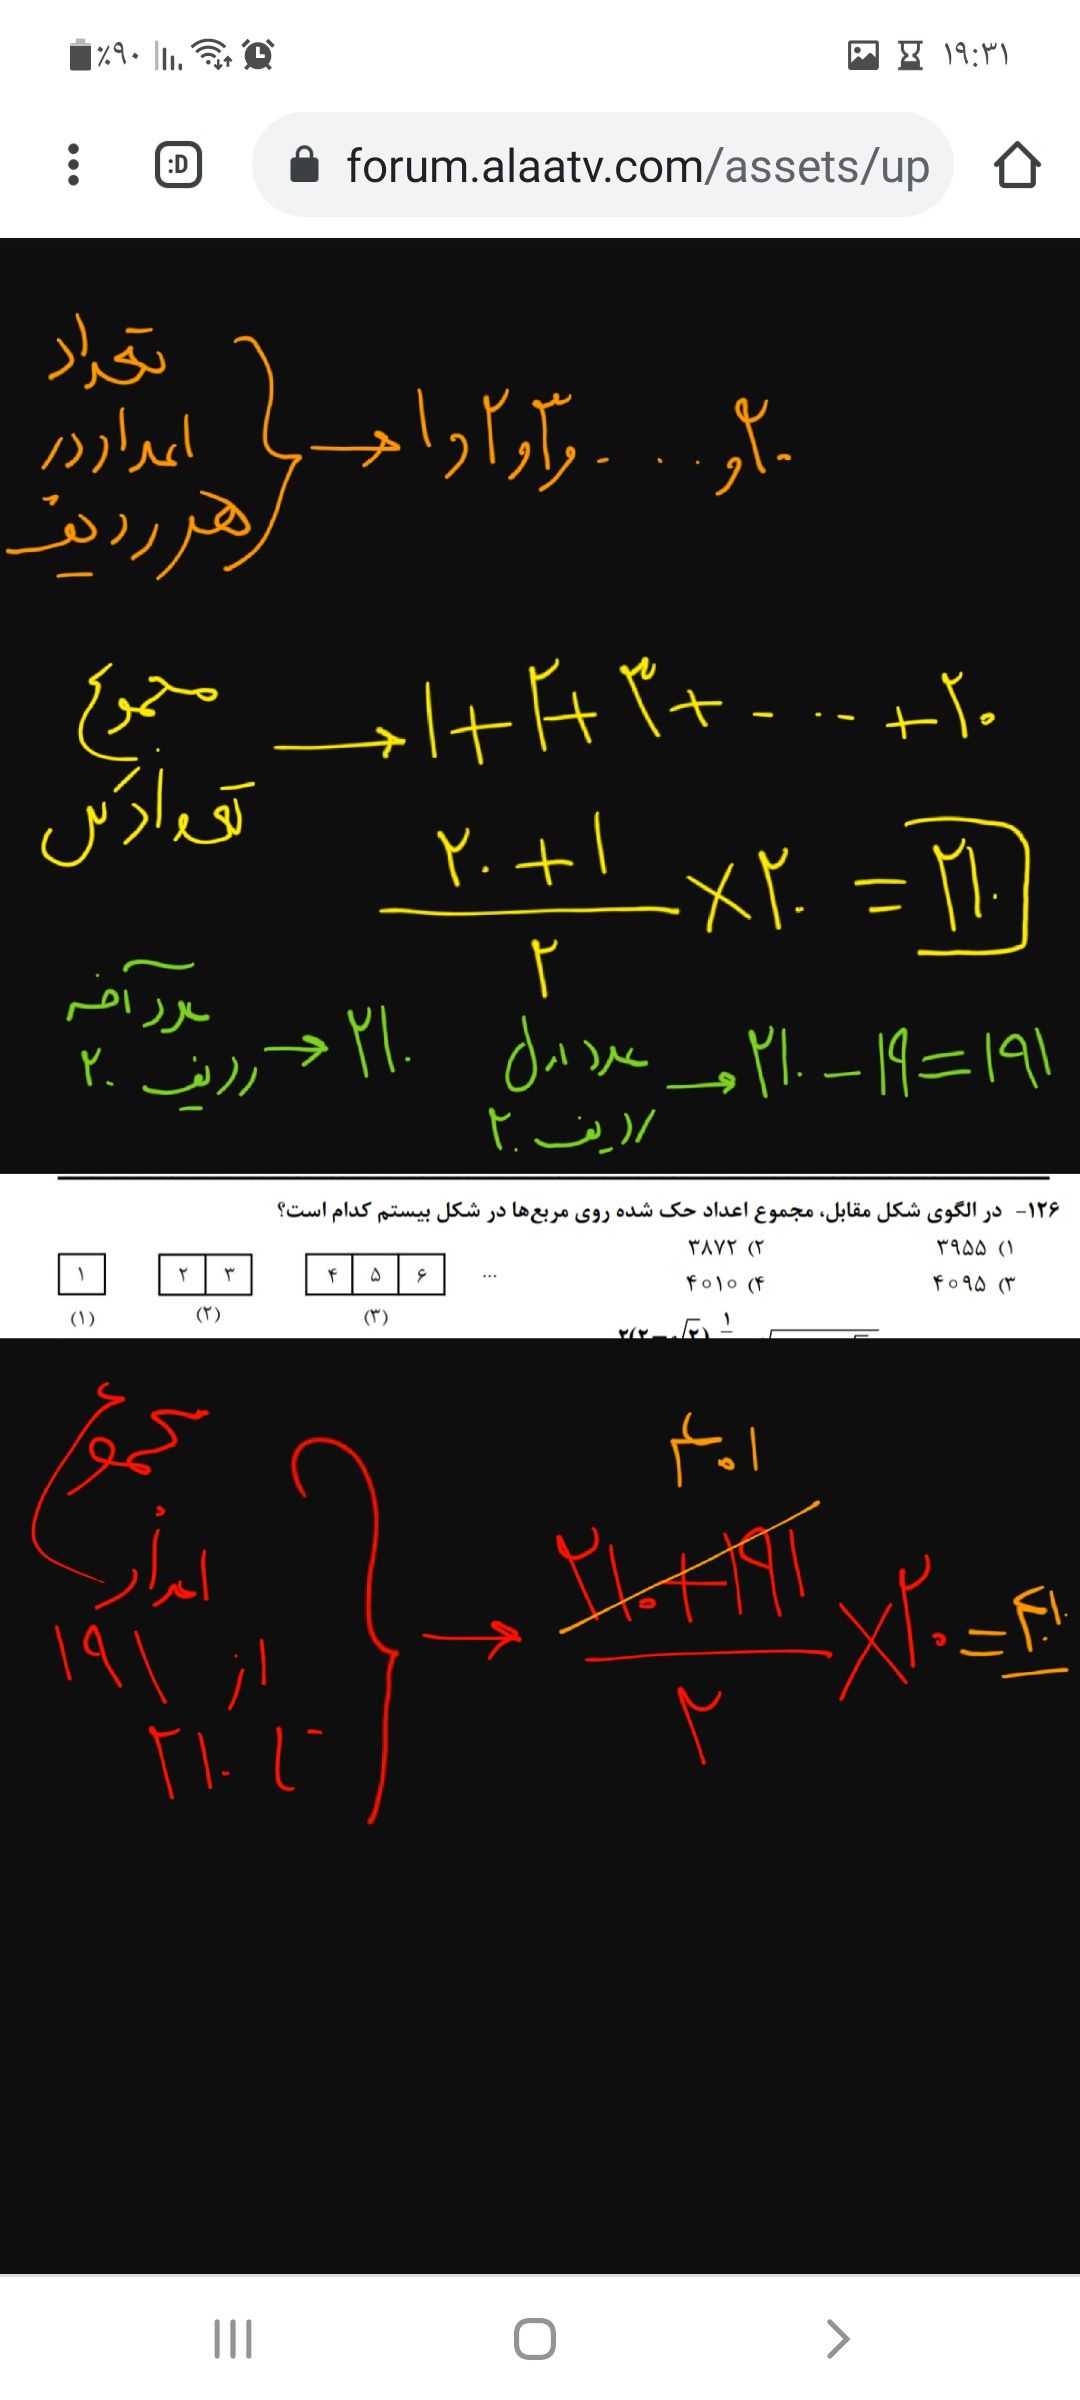 ٪۹۰ ۱۹:۳۱
:D forum.alaatv.com/assets/up
تعداد
اعداد در
هر ردیف
→ ۱ و ۲ و ۳ و ... و ۲۰
مجموع
تعدادش
→ ۱ + ۲ + ۳ + ... + ۲۰
۲۰ + ۱
۲
× ۲۰ = ۲۱۰
عدد آخر
ردیف ۲۰ → ۲۱۰
عدد اول
ردیف ۲۰ → ۲۱۰ - ۱۹ = ۱۹۱
۱۲۶- در الگوی شکل مقابل، مجموع اعداد حک شده روی مربع‌ها در شکل بیستم کدام است؟
۱) ۳۹۵۵ ۲) ۳۸۷۲
۳) ۴۰۹۵ ۴) ۴۰۱۰
۱ ۲ ۳ ۴ ۵ ۶ ...
(۱) (۲) (۳)
مجموع
اعداد
از ۱۹۱
تا ۲۱۰
→
۴۰۱
۲۱۰ + ۱۹۱
۲
× ۲۰ = ۴۰۱۰